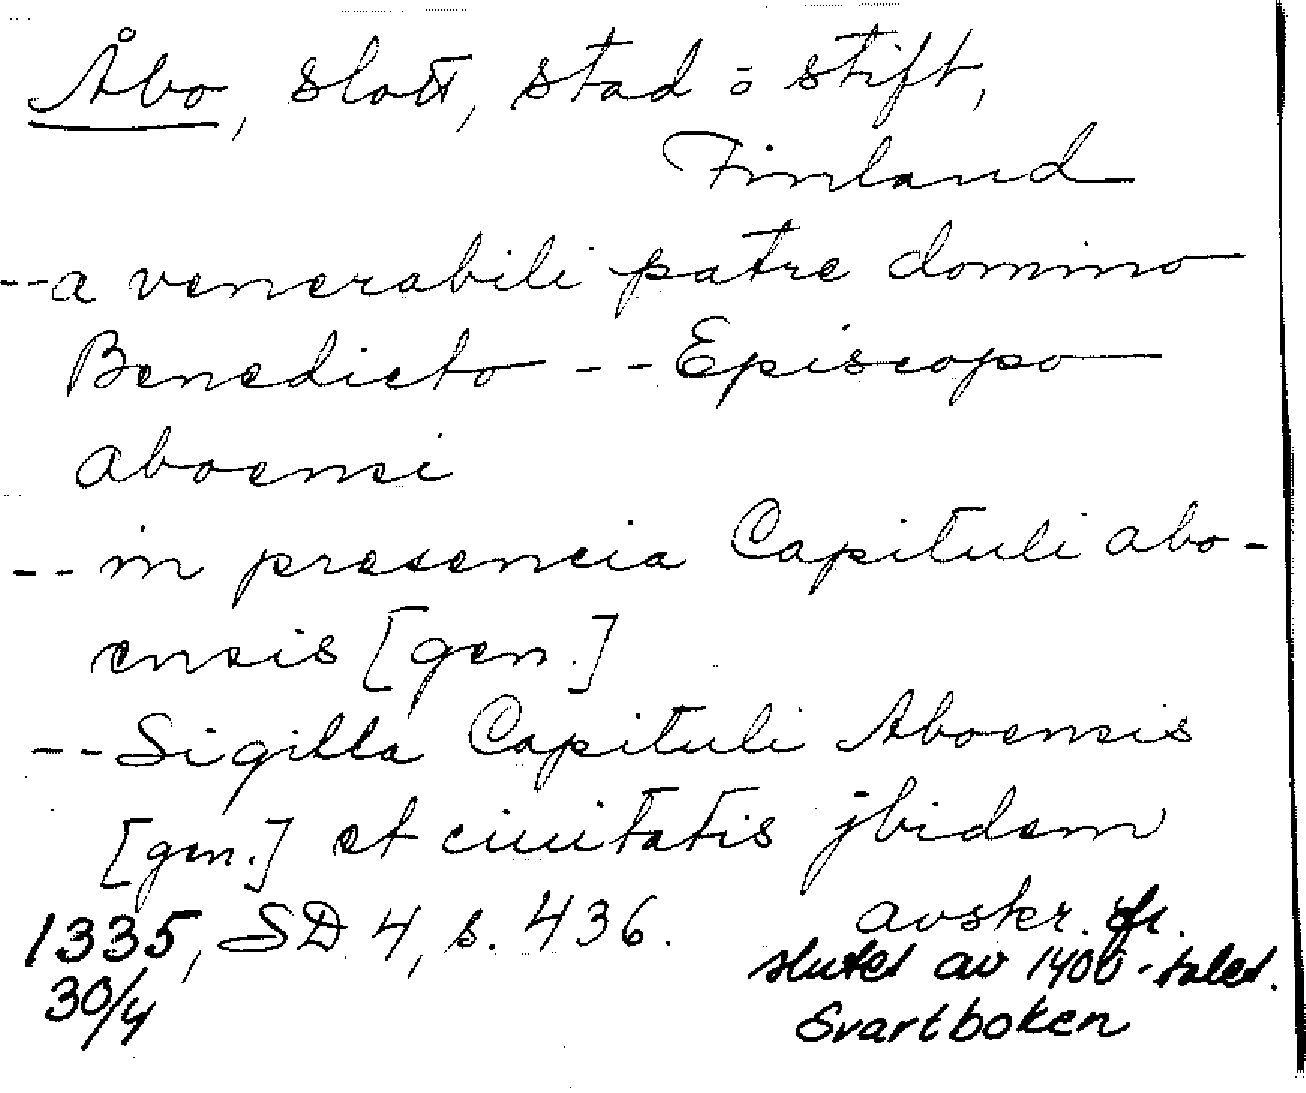 Åbo, slott, stad o stift,
Finland
--a venerabili patre domino
Benedicto -- Episcopo
aboensi
-- in presencia Capituli abo-
ensis [gen.]
-- Sigilla Capituli Aboensis
[gen.] et ciuitatis jbidem
1335, SD 4, s. 436. avskr. fr.
30/4 slutet av 1400-talet.
Svartboken